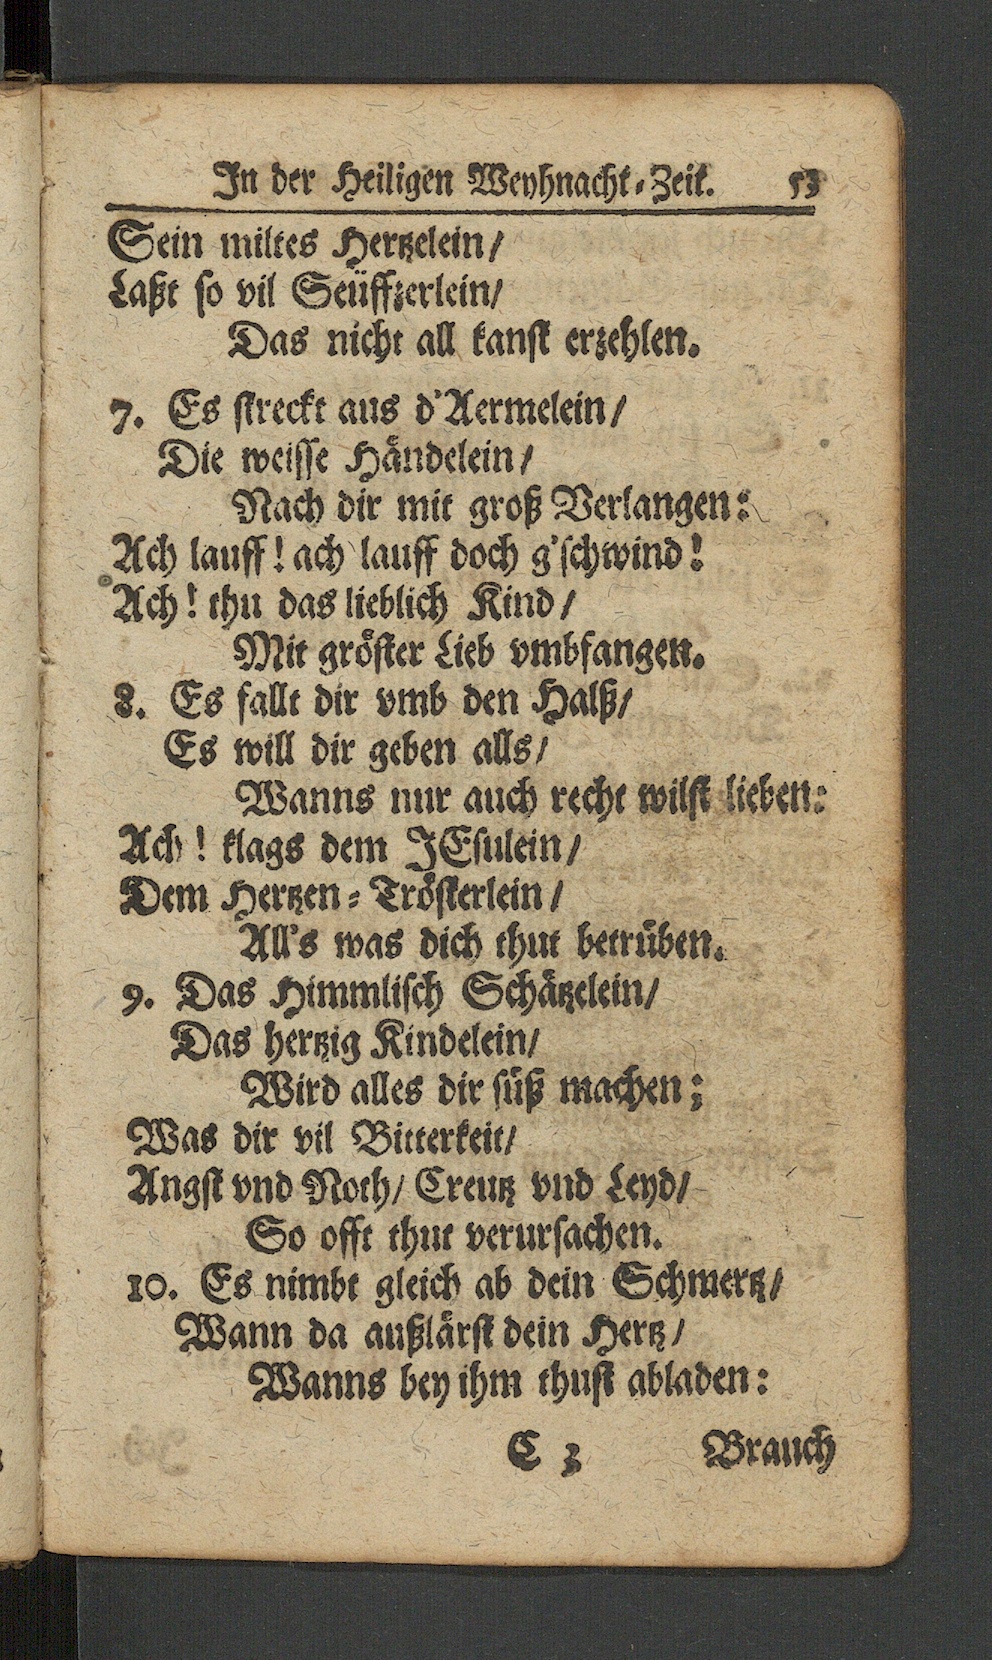 In der Heiligen Weyhnacht-Zeit. 53
Sein miltes Hertzelein/
Laßt so vil Seüffzerlein/
Das nicht all kanst erzehlen.
7. Es streckt aus d'Aermelein/
Die weisse Händelein/
Nach dir mit groß Verlangen:
Ach lauff! ach lauff doch g'schwind!
Ach! thu das lieblich Kind/
Mit gröster Lieb vmbfangen.
8. Es fallt dir vmb den Halß/
Es will dir geben alls/
Wanns nur auch recht wilst lieben:
Ach! klags dem JEsulein/
Dem Hertzen-Trösterlein/
All's was dich thut betrüben.
9. Das Himmlisch Schätzelein/
Das hertzig Kindelein/
Wird alles dir süß machen;
Was dir vil Bitterkeit/
Angst vnd Noth/ Creutz vnd Leyd/
So offt thut verursachen.
10. Es nimbt gleich ab dein Schmertz/
Wann da außlärst dein Hertz/
Wanns bey ihm thust abladen:
C 3 Brauch